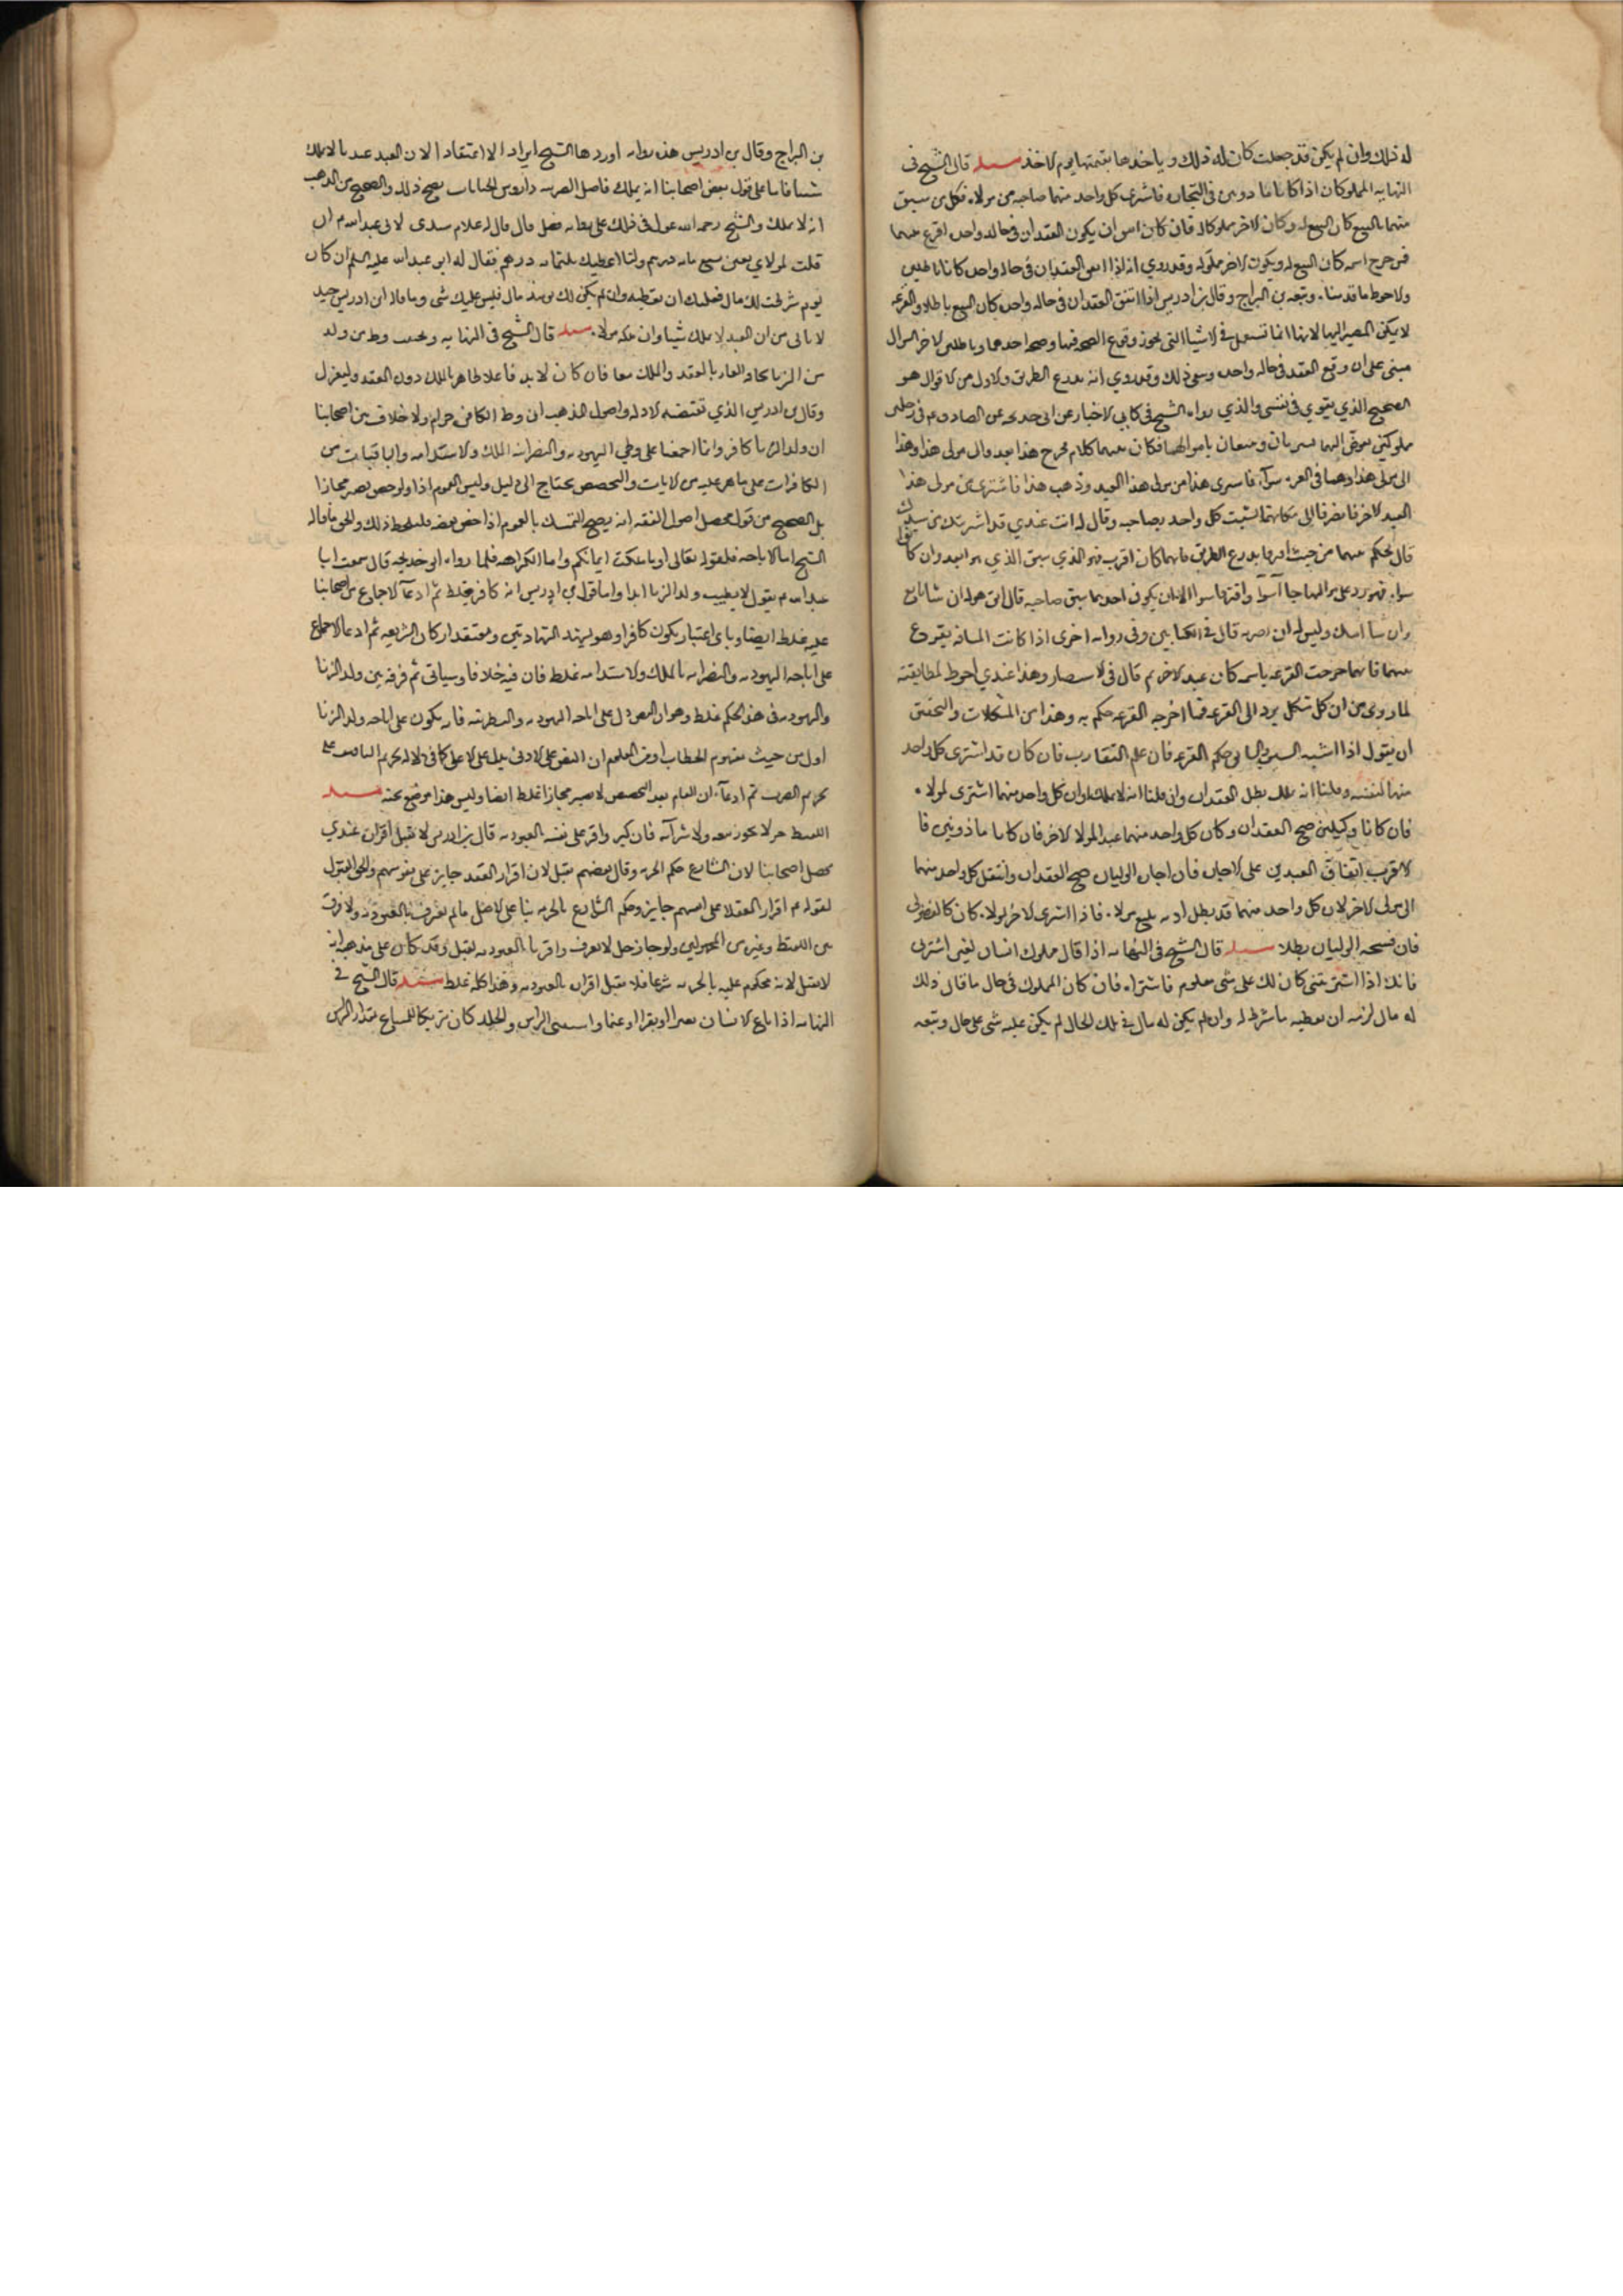 له ذلك وان لم يكن قد جعلت كان له ذلك وياخدها بقيمتها يوم الاخذ مسله قال الشيخ فى
النهايه المملوكان اذا كانا ما دونين فى التجاره فاشترى كل واحد منهما صاحبه من مولاه فكل من سبق
منهما بالبيع كان البيع له وكان الاخر مملوكا له فان كان اس ان يكون العقدان فى حاله واحده اقرع بينهما
فمن خرج اسمه كان البيع له ويكون الاخر مملوكه وقد روي انه اذا اتفق العقدان فى حاله واحده كانا باطلين
والاحوط ما قدمناه وتبعه بن البراج وقال بن ادريس اذا اتفق العقدان فى حاله واحده كان البيع باطلا والقرعه
لا يمكن المصير اليها لانها انما تستعمل فى الاشيا التى يجوز وقوع الصحه فيها وصحه احدهما وبا طلس الاخر السوال
مبنى على ان وقع العقد فى حاله واحده ذلك وقد روي انه يذرع الطريق والاول من الاقوال هو
الصحيح الذي يقوي فى نفسى والذي رواه الشيخ فى كتابي الاخبار عن ابى خديجه عن الصادق ع فى رجلين
مملوكين مفوض اليهما يشريان ويبيعان باموالهما فكان بينهما كلام فخرج هذا يعدو الى مولى هذا وهذا
الى مولى هذا وهما فى القوه سوآء فاسترى هذا من مولى هذا العبد وذهب هذا فاشترى من مولى هذا
العبد الاخر فانصرفا الى مكانهما لتشبث كل واحد بصاحبه وقال له انت عبدي قد اشتريتك من سيدك
قال يحكم بينهما من حيث افترقا يذرع الطريق فايهما كان اقرب فهو الذي سبق الذي هو ابعد وان كانا
سواء فهو رد على مواليهما جاآ سوآ وافترقا سوا الا ان يكون احدهما سبق صاحبه فالسابق هو له ان شا باع
وان شا امسك وليس له ان يضربه قال فى الكتابين وفى روايه اخرى اذا كانت المسافه يقرع
بينهما فايهما خرجت القرعه باسمه كان عبد الاخر ثم قال فى الاستبصار وهذا عندي احوط لمطابقته
لما روي من ان كل مشكل يرد الى القرعه فما اخرجه القرعه حكم به وهذا من المشكلات والتحقيق
ان يقول اذا اشتبه السبق حكم القرعه فان علم التقارب فان كان قد اشترى كل واحد
منهما لنفسه وقلنا انه يملك بطل العقدان وان قلنا انه لا يملك او ان كل واحد منهما اشترى لمولاه
فان كانا وكيلين صح العقدان وكان كل واحد منهما عبدا لمولا الاخر فان كانا ماذونين فا
لاقرب ايقاف العبدين على الاجازه فان اجاز الوليان صح العقدان وانتقل كل واحد منهما
الى مولى الاخر لان كل واحد منهما قد بطل اذنه ببيع مولاه فاذا اشترى الاخر لمولاه كان كالفضولى
فان فسخه الوليان بطلا مسله قال الشيخ فى النهايه اذا قال مملوك انسان لغيره اشترنى
فانك اذا اشتريتنى كان لك على شى معلوم فاشتراه فان كان المملوك فى حال ما قال ذلك
له مال لزمه ان يعطيه ما شرط له وان لم يكن له مال فى تلك الحال لم يكن عليه شى على حال وتبعه
بن البراج وقال بن ادريس هذه روايه اوردها الشيخ ايرادا لا اعتقادا لان العبد عندنا لا يملك
شيئا فاما على قول بعض اصحابنا انه يملك فاضل الضريبه واروش الجنايات يصح ذلك والصحيح من المذهب
انه لا يملك والشيخ رحمه الله عول فى ذلك على روايه فضل قال قال غلام سندى لابى عبد الله ع انى
قلت لمولاي بعنى بسبع مائه درهم وانا اعطيك ثلثمائه درهم فقال له ابو عبد الله عليه السلم ان كان
يوم شرطت لك مال فعليك ان تعطيه وان لم يكن لك يومئذ مال فليس عليك شى وما قاله ابن ادريس جيد
لانا نمنع ان العبد لا يملك شيئا وان ملكه مولاه مسله قال الشيخ فى النهايه ويجتنب وطى من ولد
من الزنا مخافه العار بالعقد والملك معا فان كان لا بد فاعلا فليطاهن بالملك دون العقد وليعزل
وقال بن ادريس الذي تقتضيه الادله واصول المذهب ان وطى الكافره حرام ولا خلاف بين اصحابنا
ان ولد الزنا كافر وانما اجمعنا على وطي اليهوديه والنصرانيه بالملك والاستدامه والباقيات من
الكافرات على ما هن عليه من الايات والتخصيص يحتاج الى دليل وليس العموم اذا خص يصير مجازا
بل الصحيح من قول محصلى اصول الفقه انه يصح التمسك بالعموم اذا خص بعضه فليلحظ ذلك والحق ما قاله
الشيخ اما الاباحه فلقوله تعالى او ما ملكت ايمانكم واما الكراهه فلما رواه ابى خديجه قال سمعت ابا
عبد الله ع يقول لا يطيب ولد الزنا ابدا واما قول بن ادريس انه كافر فغلط ثم ادعآ الاجماع من اصحابنا
عليه غلط ايضا وباى اعتبار يكون كافرا وهو يشهد الشهادتين ومعتقد اركان الشريعه ثم ادعا الاجماع
على اباحه اليهوديه والنصرانيه بالملك والاستدامه غلط فان فيه خلافا وسياتى ثم فرقه بين ولد الزنا
واليهوديه فى هذا الحكم غلط وهو ان النص دل على اباحه اليهوديه والنصرانيه فانه يكون على اباحه ولد الزنا
اولى من حيث مفهوم الخطاب اوقد العلم ان النص على الادنى يدل على الاعلى كما فى دلاله تحريم التافيف على
تحريم الضرب ثم ادعآه ان العام بعد التخصيص لا يصير مجازا غلط ايضا وليس هذا موضع بحثه مسله
اللقيط حر لا يجوز بيعه ولا شرآه فان كبر واقر على نفسه العبوديه قال بن ادريس لا يقبل اقراره عندي
محصل اصحابنا لان الشارع حكم عليه بالحريه وقال بعضهم يقبل لان اقرار العقلا جايز على نفوسهم والحق القبول
لقوله ع اقرار العقلا على انفسهم جايز وحكم الشارع بالحريه بنا على الاصل ما لم يعرف بالعبوديه ولا فرق
بين اللقيط وغيره من المجهولين ولو جاز رجل لا يعرف واقر بالعبوديه يقبل وقد كان على مذهبه انه
لا يقبل لانه محكوم عليه بالحريه شرعا فلا يقبل اقراره بالعبوديه وهذا كله غلط مسله قال الشيخ فى
النهايه اذا باع الانسان بعيرا او بقرا او غنما واستثنى الراس والجلد كان شريكا للمبتاع بمقدار الراس